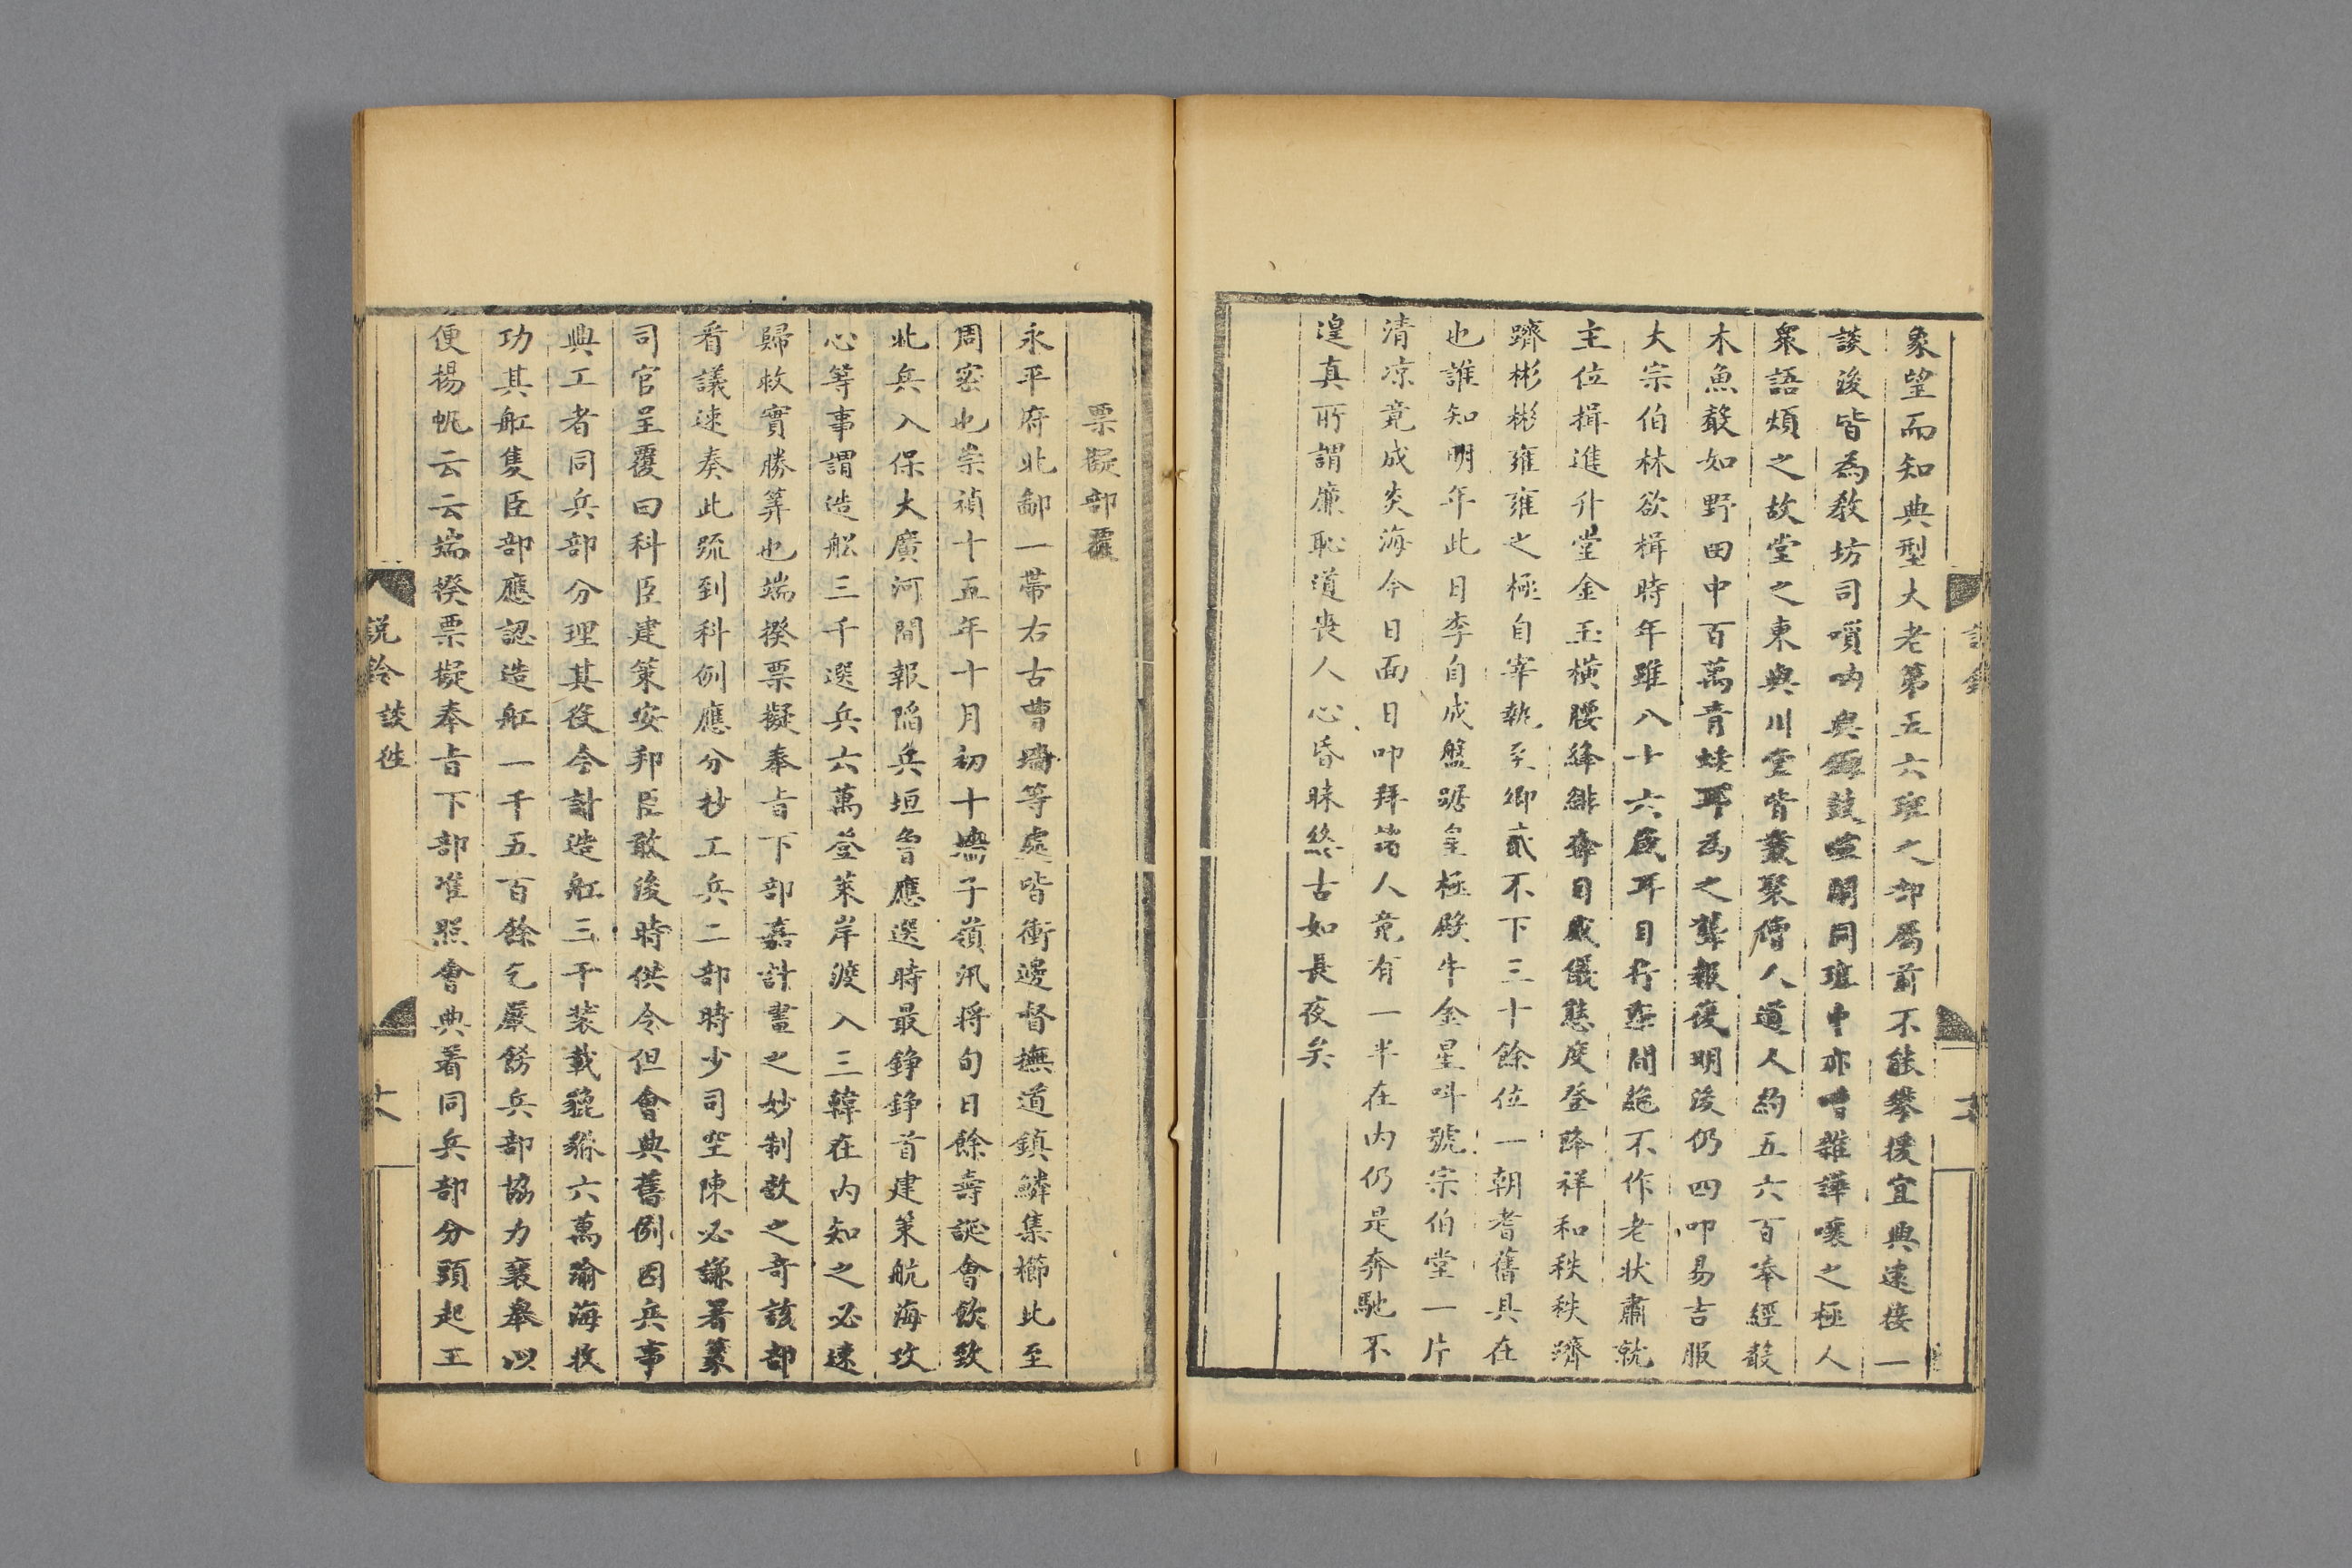 象望而知典型大老第五六班之部属前不能攀援宜興遠接一
談後皆為教坊司嗩吶與鐃鼓喧闐同班中亦嘈雜譁嚷之極人
衆語煩之故堂之東與川堂皆叢聚僧人道人約五六百奉經敲
木魚聲如野田中百萬青蛙耳為之聾報後明後仍四叩易吉服
大宗伯林欲楫時年雖八十六歲耳目行歩間絶不作老状肅就
主位揖進升堂金玉橫腰絳緋奪目威儀態度登降祥和秩秩躋
躋彬彬雍雍之極自宰執至卿貳不下三十餘位一朝耆舊具在
也誰知明年此日李自成盤踞皇極殿牛金星叫號宗伯堂一片
清凉竟成炎海今日面日叩拜諸人竟有一半在内仍是奔馳不
遑真所謂廉恥道喪人心昏昧終古如長夜矣
票擬部覆
永平府北鄙一帶右古曹墻等處皆衝邊督撫道鎮鱗集櫛比至
周密也崇禎十五年十月初十墻子嶺汛將旬日餘壽誕會飲致
北兵入保大廣河間報陷兵垣魯應選時最錚錚首建策航海攻
心等事謂造舩三千選兵六萬登萊岸渡入三韓在内知之必速
歸救實勝筭也端揆票擬奉旨下部嘉計畫之妙制敵之奇該部
看議速奏此疏到科例應分抄工兵二部時少司空陳必謙署篆
司官呈覆曰科臣建策安邦臣敢後時供令但會典舊例因兵事
興工者同兵部分理其役今計造舡三千装載貔貅六萬渝海收
功其舡隻臣部應認造舡一千五百餘乞嚴餝兵部協力襄舉以
便揚帆云云端揆票擬奉旨下部准照會典着同兵部分頭起工
説鈴 談徃
十六